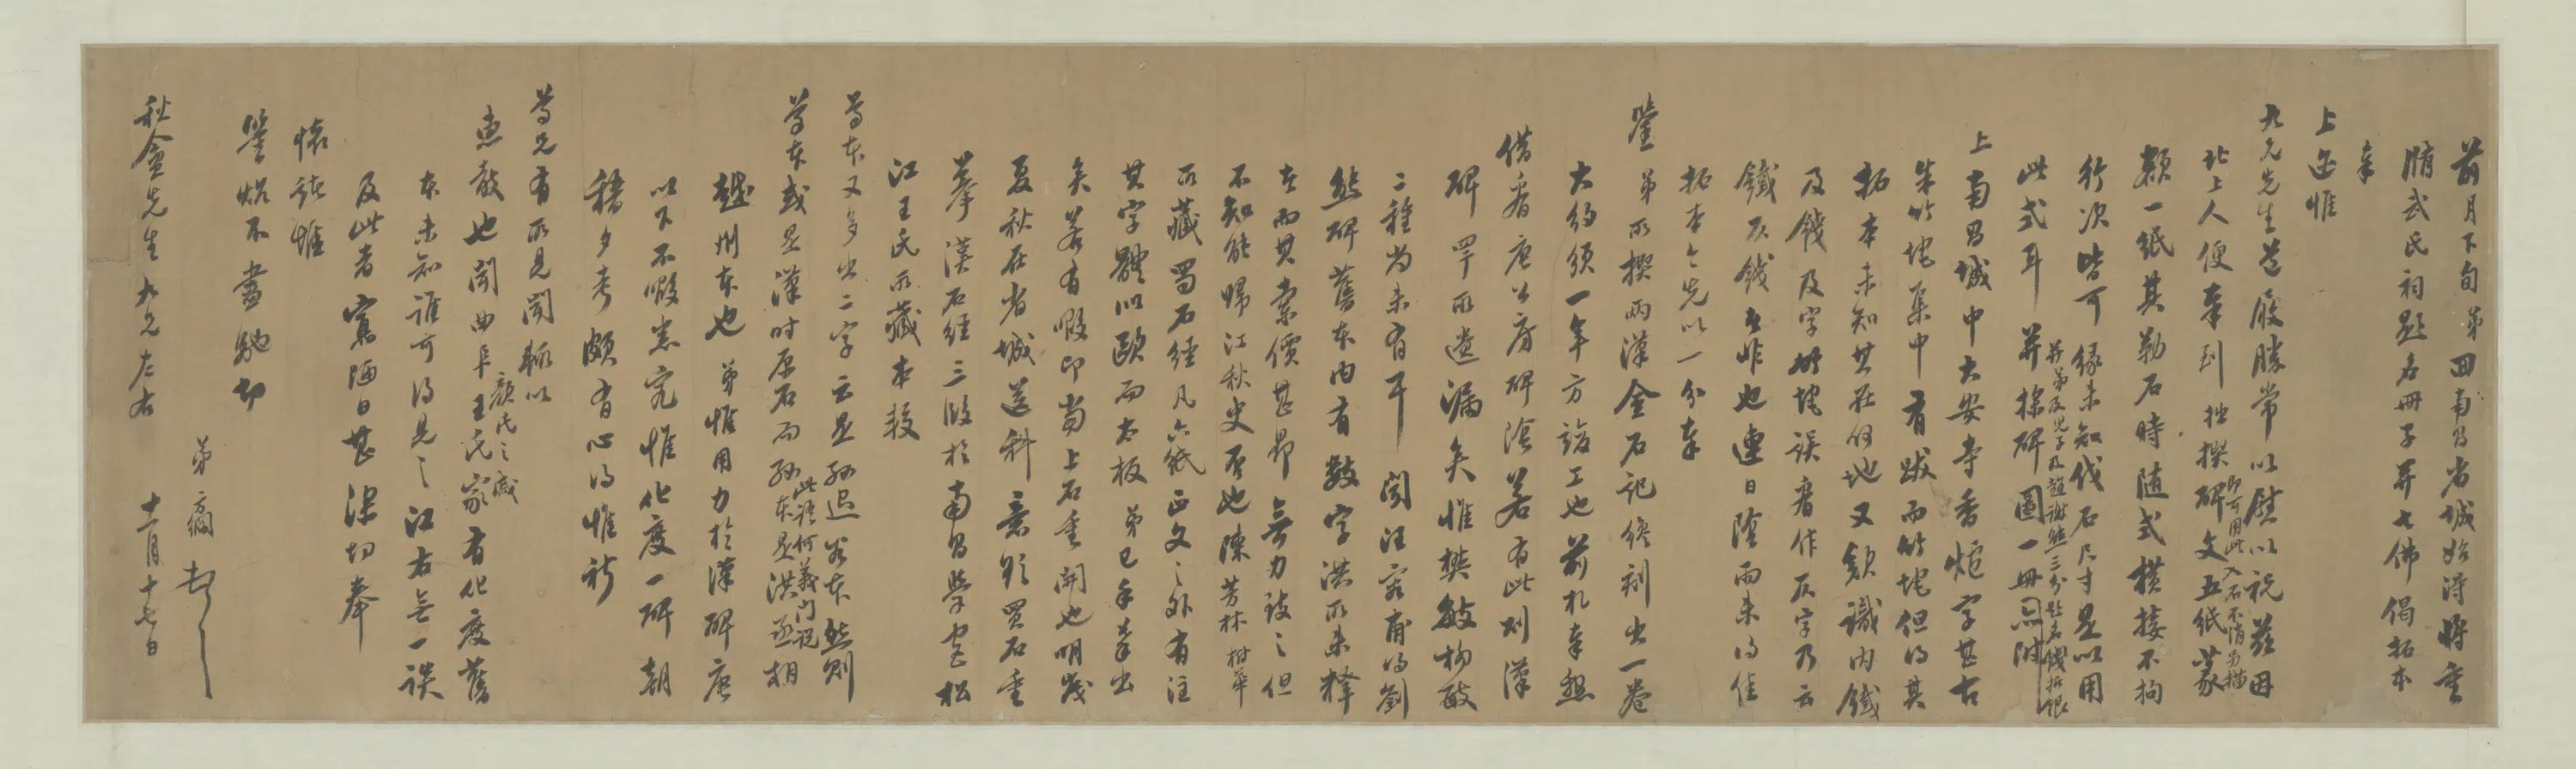 前月下旬弟回南昌省城始得將重
脩武氏祠題名冊子并七佛偈拓本
奉
上函惟
九兄先生道履勝常以慰以祝茲因
北上人便奉到拙撰碑文五紙篆
即可用此入石不須另描
額一紙其勒石時隨式橫接不拘
行次皆可緣未知伐石尺寸是以用
此式耳并採碑圖一冊同附
并弟及兒子及趙謝熊三分題名錢拆銀
上南昌城中大安寺香爐字甚古
朱竹垞集中有跋而竹垞但得其
拓本未知其在何地又款識內鐵
及錢及字竹垞誤看作仄字乃云
鐵仄錢者非也連日陰雨未得佳
拓本今先以一分奉
鑒弟所撰兩漢金石記終刻出一卷
大約須一年方竣工也前札奉懇
借看唐公房碑陰若有此則漢
碑罕所遺漏矣惟樊敏楊敏
二種尚未有耳聞汪容甫得劉
熊碑舊本內有數字洪所未釋
者而其索價甚昂無力致之但
不知能歸江秋史否也陳芳林樹華
所藏蜀石經凡六紙正文之外有注
其字體似歐而太板弟已手摹出
矣若有暇即當上石重開也明歲
夏秋在省城送科意欲買石重
摹漢石經三段於南昌學宮松
江王氏所藏本較
尊本又多出二字云是孫退谷本然則
尊本或是漢時原石而孫本是洪丞相
此語何義門說
越州本也弟惟用力於漢碑唐
以下不暇悉究惟化度一碑朝
稽夕考頗有心得惟祈
尊兄有所見聞輒以
惠教也聞曲阜王氏家有化度舊
顏氏之戚
本未知誰可得見之江右無一談
及此者寓陋日甚深切奉
懷諸惟
鑒炤不盡馳切
弟綱頓首
秋盦先生九兄左右
十一月十七日